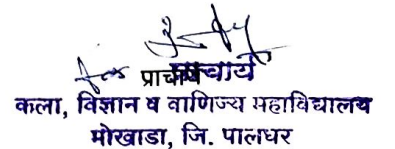 प्राचार्य
कला, विज्ञान व वाणिज्य महाविद्यालय
मोखाडा, जि. पालघर